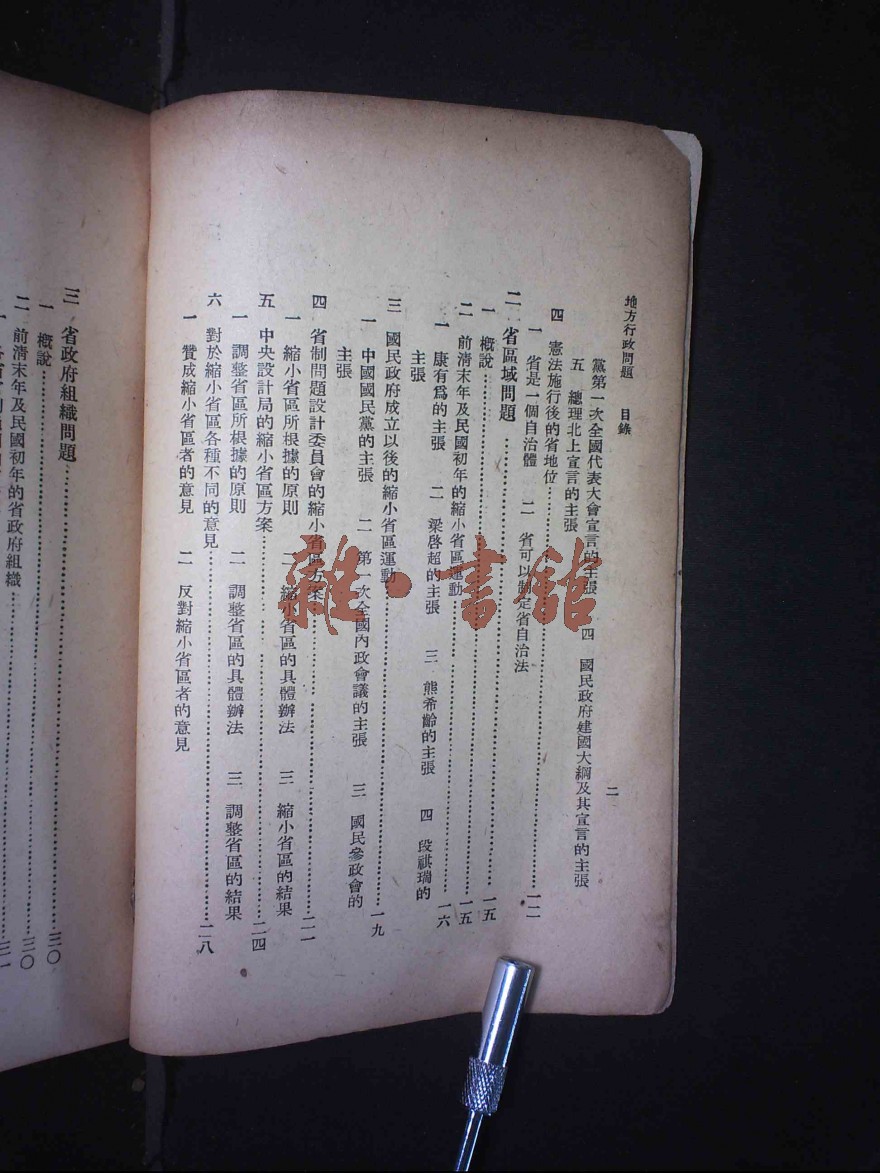 地方行政問題 目錄 二
黨第一次全國代表大會宣言的主張 四 國民政府建國大綱及其宣言的主張
五 總理北上宣言的主張
四 憲法施行後的省地位……一二
一 省是一個自治體 二 省可以制定省自治法
二 省區域問題……一五
一 概說……一五
二 前清末年及民國初年的縮小省區運動……一六
一 康有爲的主張 二 梁啓超的主張 三 熊希齡的主張 四 段祺瑞的
主張
三 國民政府成立以後的縮小省區運動……一九
一 中國國民黨的主張 二 第一次全國內政會議的主張 三 國民參政會的
主張
四 省制問題設計委員會的縮小省區方案……二一
一 縮小省區所根據的原則 二 縮小省區的具體辦法 三 縮小省區的結果
五 中央設計局的縮小省區方案……二四
一 調整省區所根據的原則 二 調整省區的具體辦法 三 調整省區的結果
六 對於縮小省區各種不同的意見……二八
一 贊成縮小省區者的意見 二 反對縮小省區者的意見
三 省政府組織問題……三〇
一 概說……三〇
二 前清末年及民國初年的省政府組織……三一
雜·書館